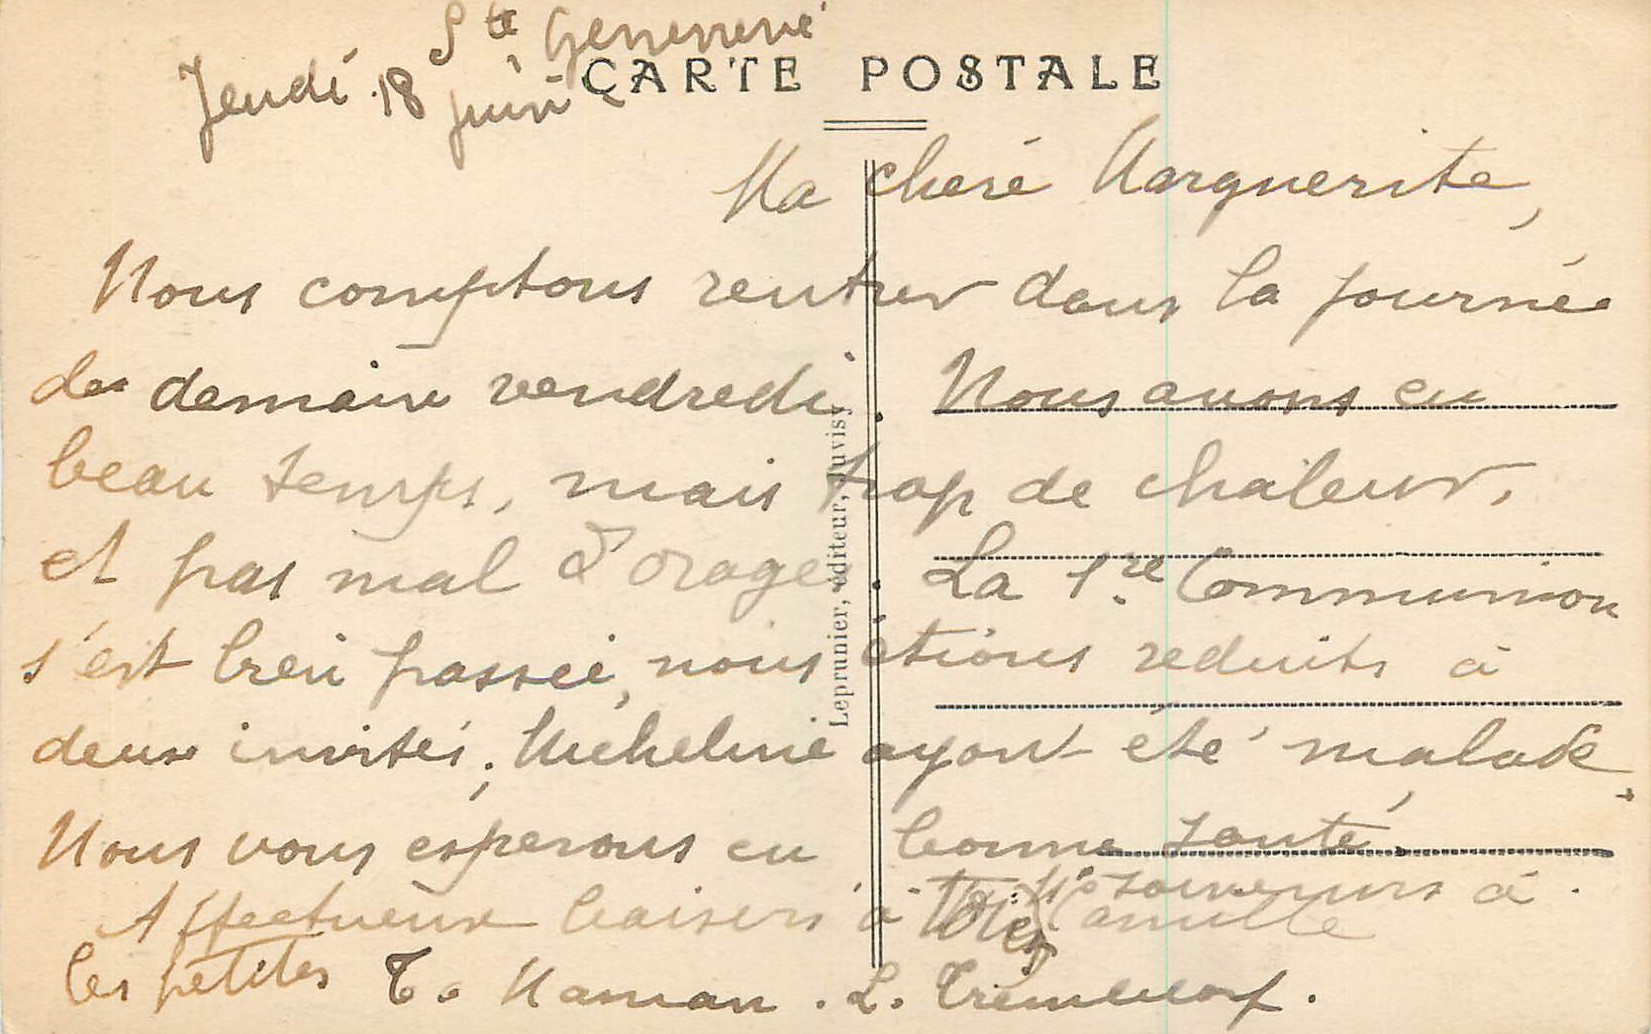 Ste Geneviève
Jeudi 18 juin
CARTE POSTALE
Ma chère Marguerite,
Nous comptons rentrer dans la journée
de demain vendredi. Nous avons eu
beau temps, mais trop de chaleur,
et pas mal d'orage. La 1re Communion
s'est bien passée, nous étions réduits à
deux invités, Micheline ayant été malade.
Nous vous espérons en bonne santé.
Affectueux baisers à
souvenirs à Camille
les petites T. Maman. L.
Leprunier, éditeur, Juvisy